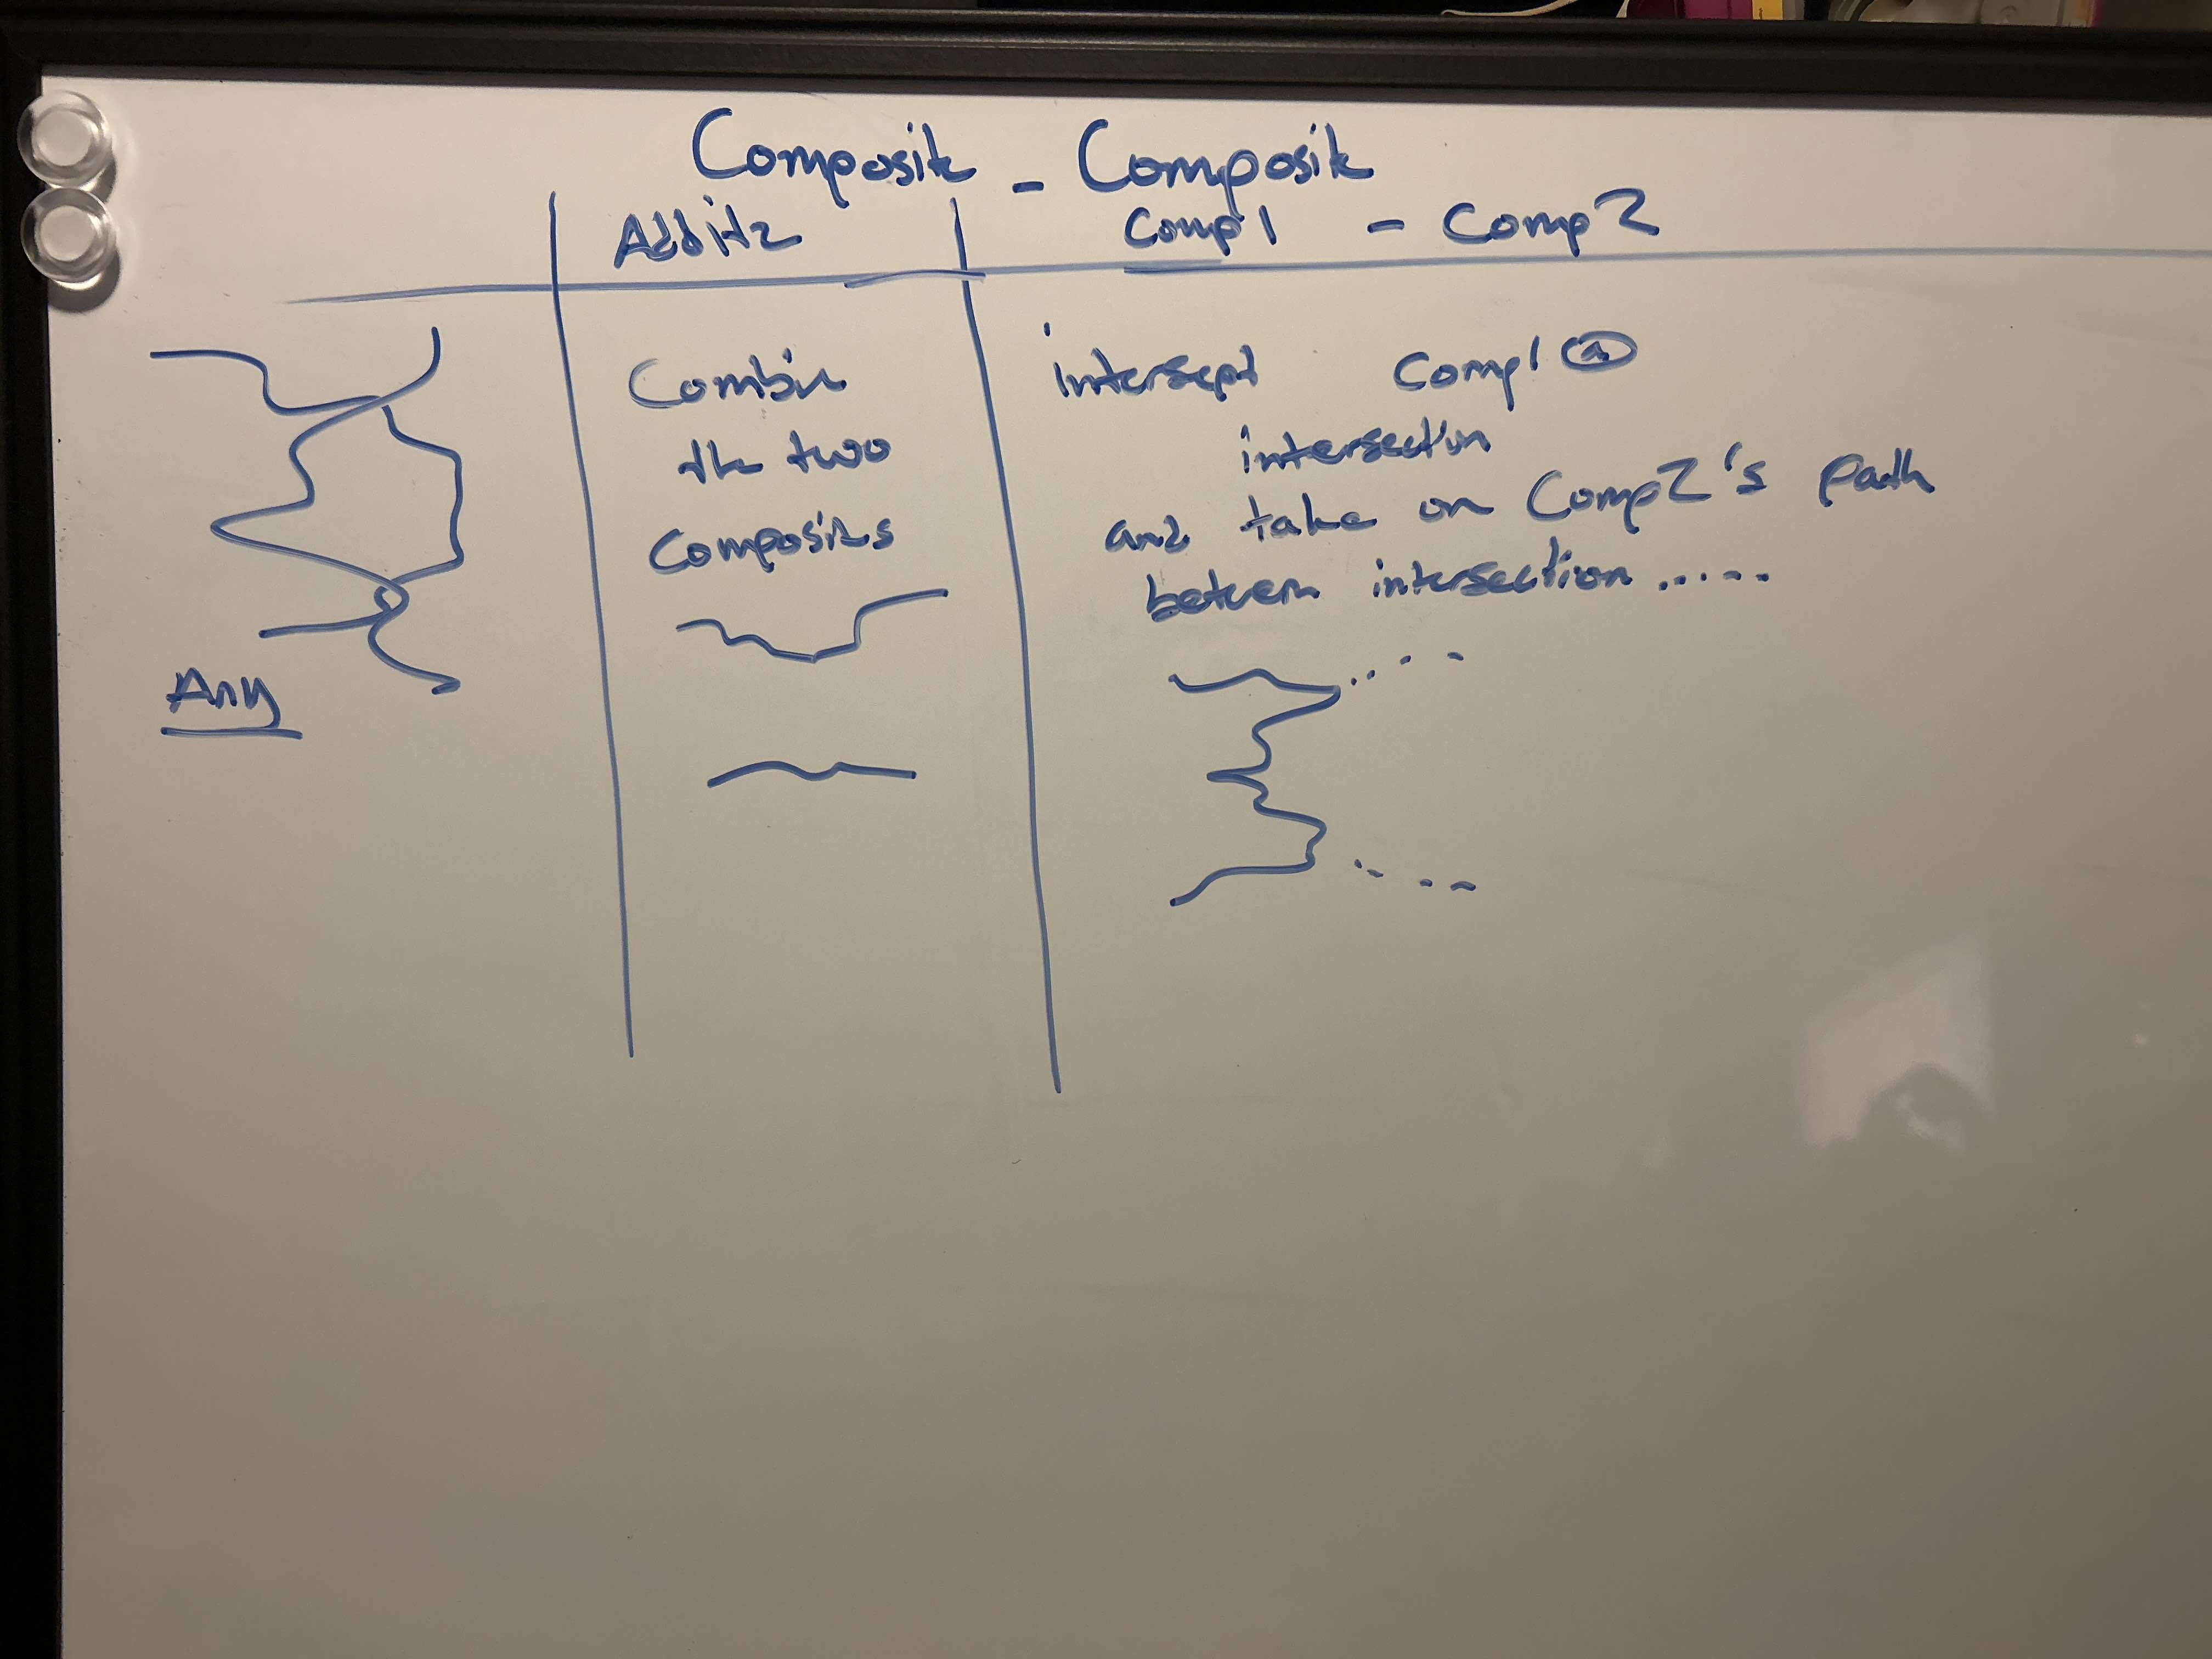 Composite - Composite
Additz
Comp1 - Comp2
Combin
the two
Composits
intersept Comp1 @
intersection
and take on Comp2's path
between intersection .....
Any